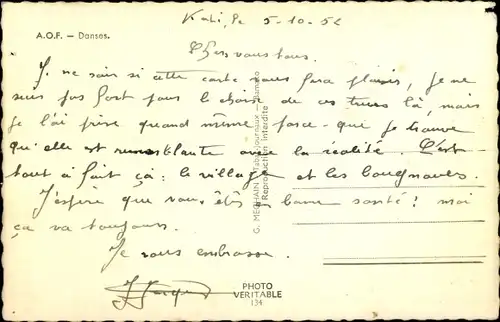 Kati, le 5-10-52
A.O.F. — Danses.
Chers vous tous.
Je ne sais si cette carte vous fera plaisir, je ne
suis pas fort pour le choix de ces trucs là, mais
je l'ai prise quand même parce-que je trouve
qu'elle est ressemblante avec la réalité. C'est
tout à fait ça : le village et les bougnoules.
J'espère que vous êtes en bonne santé ! moi
ça va toujours.
Je vous embrasse.
G. MECHAIN Tabac-Journaux
Reproduction interdite
PHOTO
VERITABLE
134